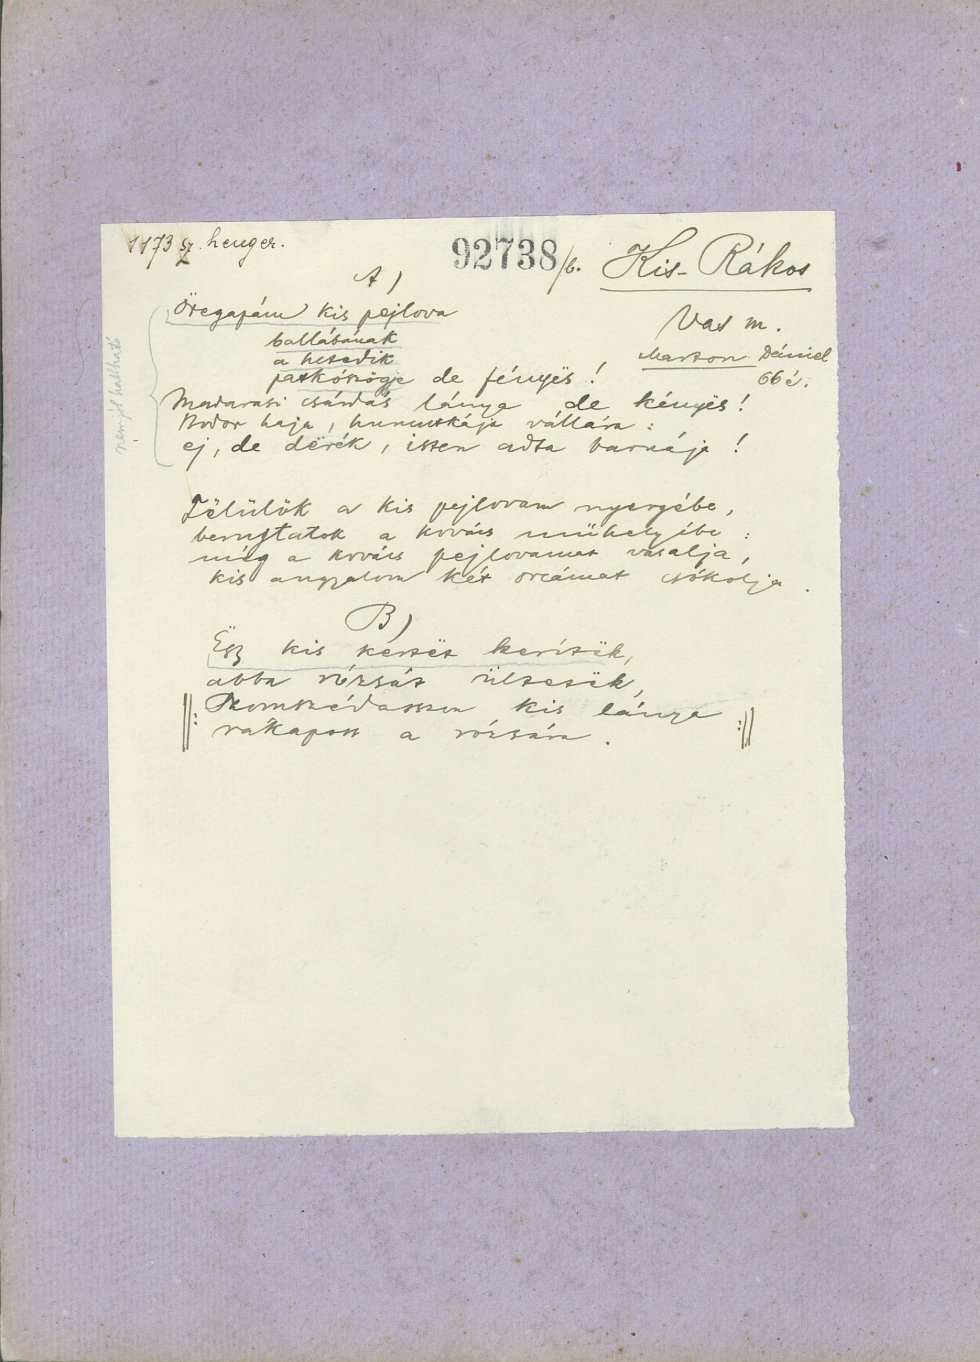 1173 sz. henger.
92738/b.
Kis-Rákos
Vas m.
Marton Dániel
66 é.
A)
Öregapám kis pejlova
ballábának
a hetedik
patkószöge de fényës!
Madarasi csárdás lánya de kényës!
Bodor haja, hunutkája vállára:
ej, de dërék, isten adta barnája!
nem jól hallható
Fëlülök a kis pejlovam nyergébe,
beruktatok a kovács műhelyébe:
még a kovács pejlovamat vasalja,
kis angyalom két orcámat csókolja.
B)
Ëgy kis kertët kerítëk,
abba rózsát ültetëk,
||: Szomszédasszon kis lánya
rákapott a rózsára. :||